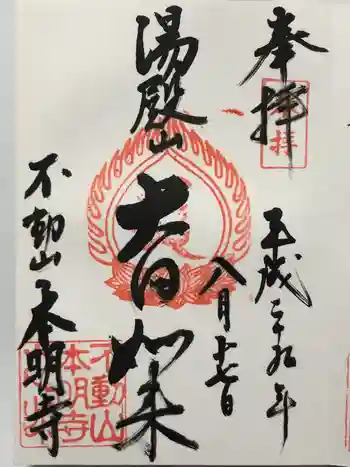 奉拝
平成二十九年
八月
湯殿山
大日如来
不動山本明寺
拝
不動山
本明寺